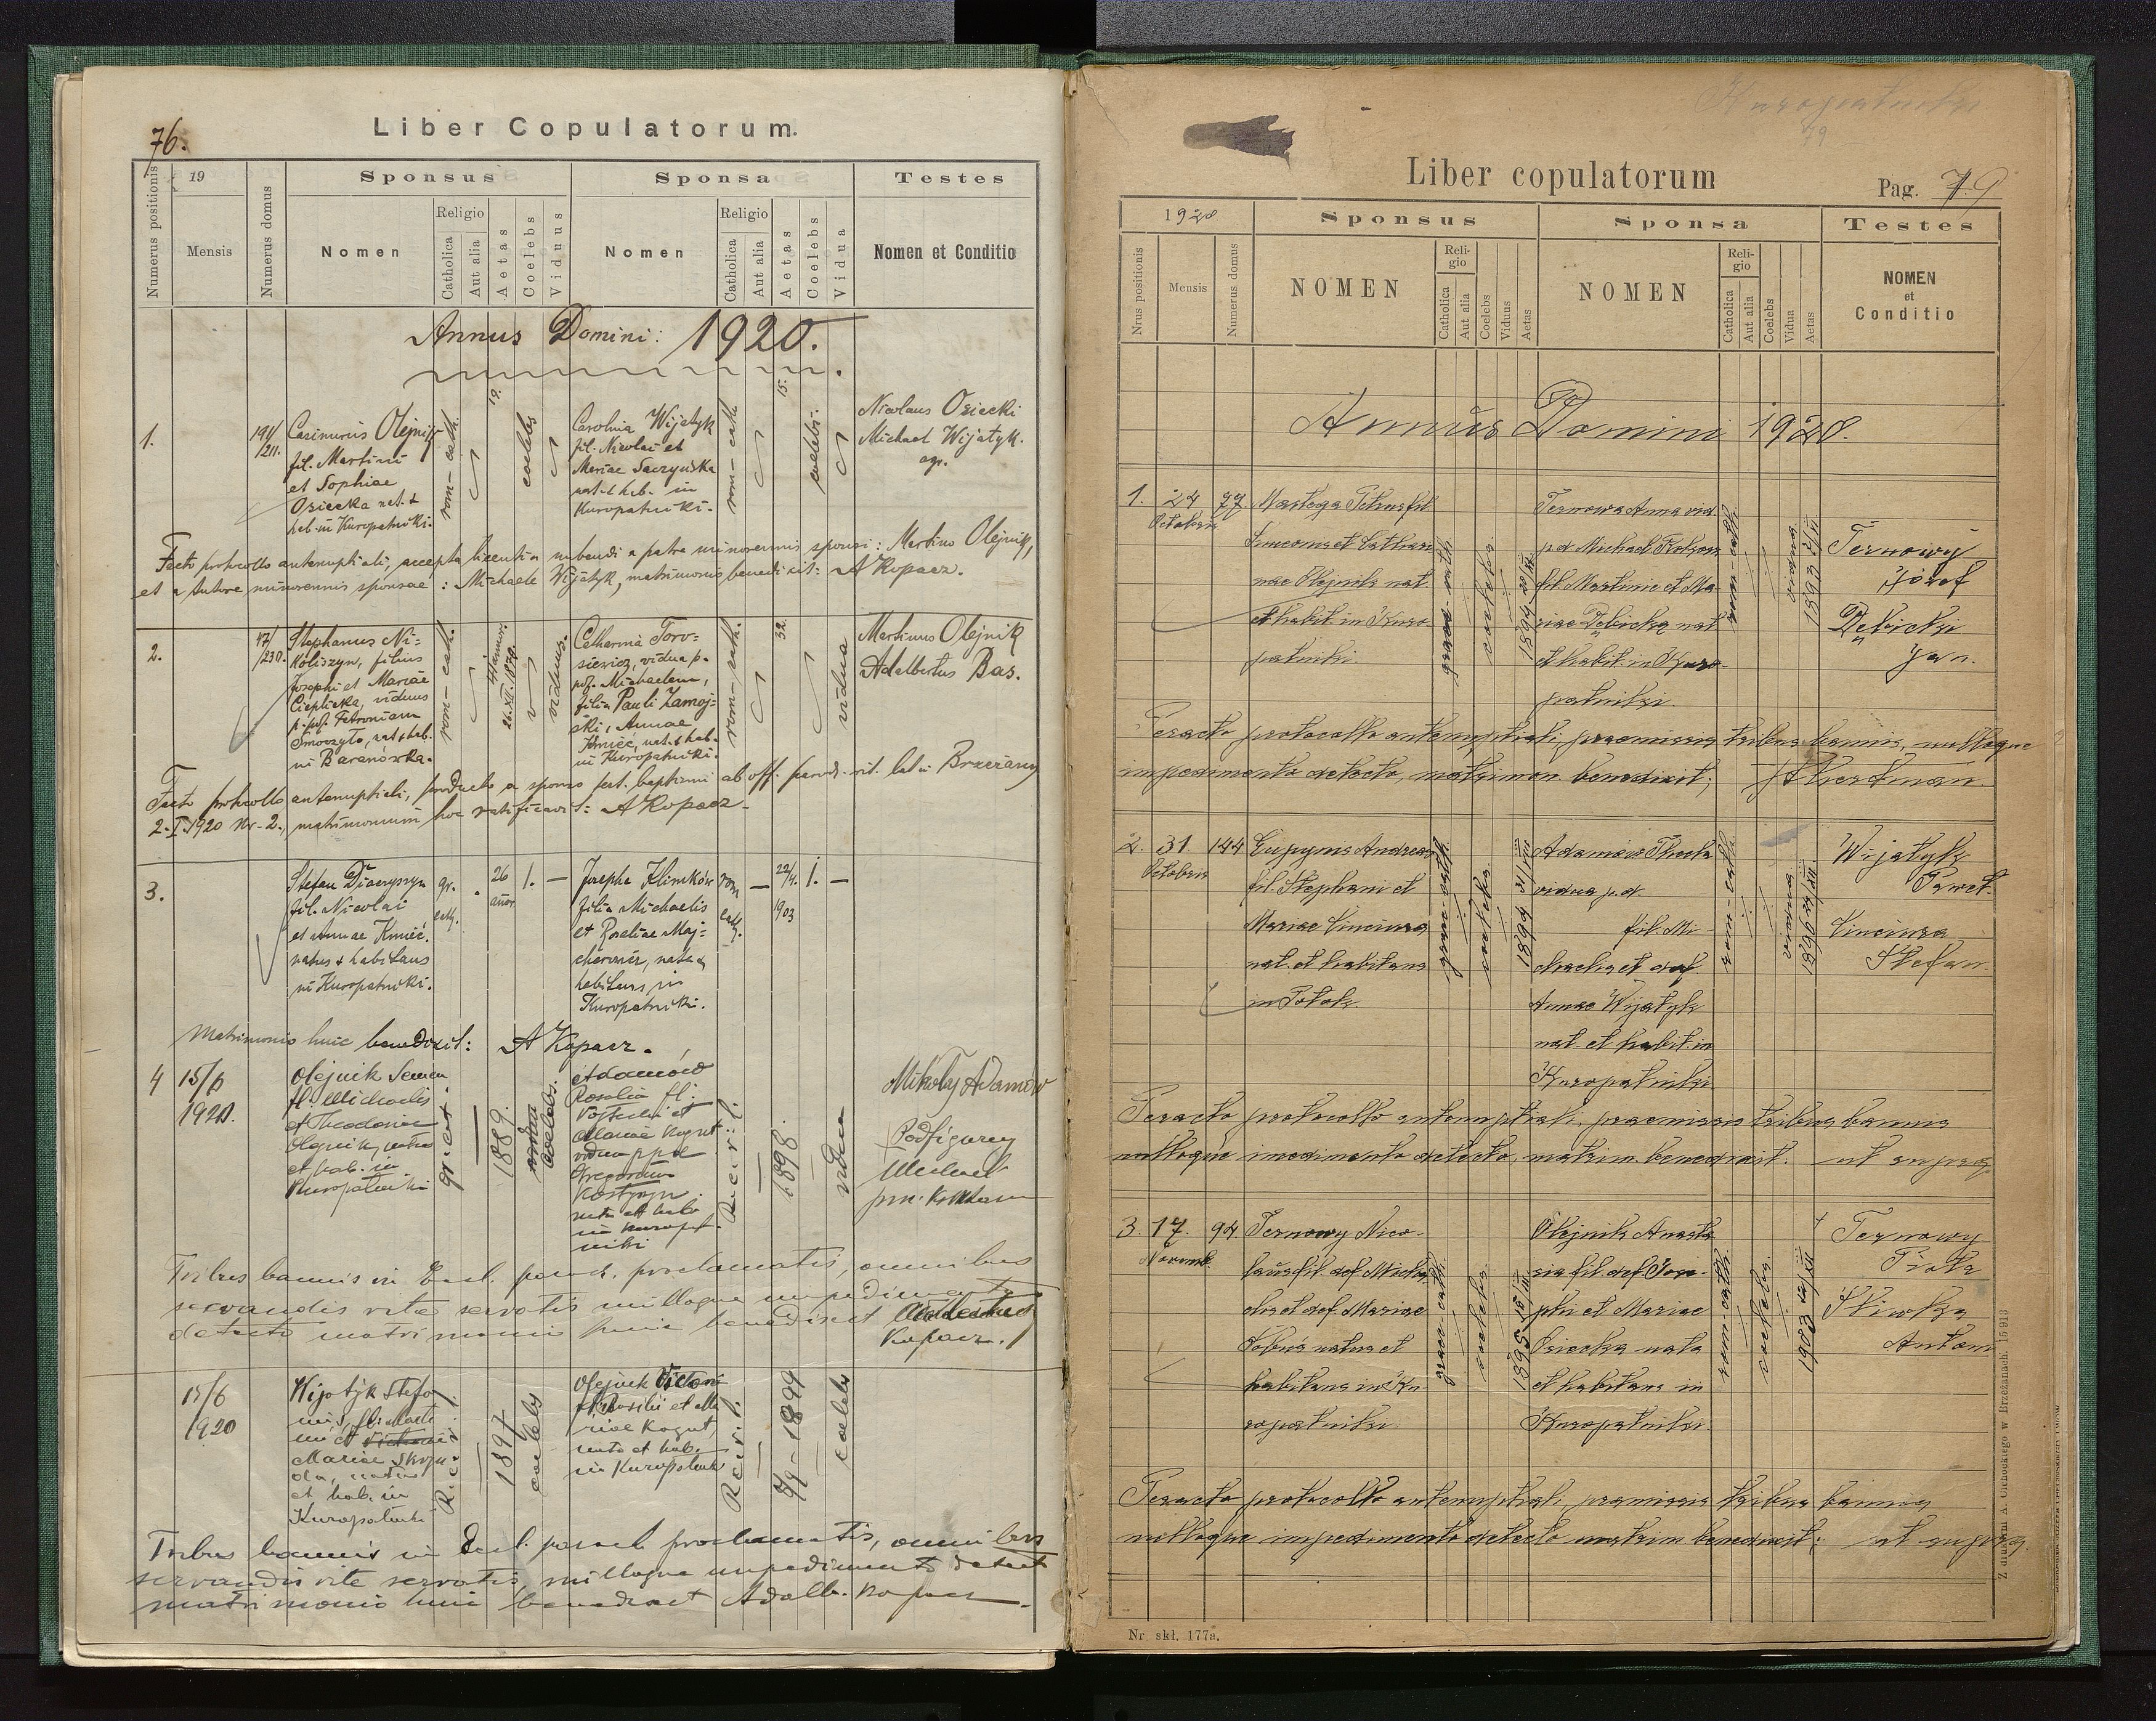 76.
Liber Copulatorum.
Numerus positionis
19
Mensis
Numerus domus
Sponsus
Nomen
Religio
Catholica
Aut alia
Aetas
Coelebs
Viduus
Sponsa
Nomen
Religio
Catholica
Aut alia
Aetas
Coelebs
Vidua
Testes
Nomen et Conditio
Annus Domini: 1920.
1.
Casimirus Olejnik
fil. Martini
et Sophiae
Osiecka nat. &
hab. in Kuropatniki.
rom-cath.
19.
coelebs
Carolina Wijatyk
fil. Nicolai et
Mariae Saczyńska
nat. & hab. in
Kuropatniki.
rom-cath.
15.
coelebs.
Nicolaus Osiecki
Michael Wijatyk.
agr.
Facto protocollo antenuptiali, accepta licentia nubendi a patre minorennis sponsi: Martino Olejnik,
et a tutore minorennis sponsae: Michaele Wijatyk, matrimonio benedixit: A Kopacz.
2.
17/230.
Stephanus Ni-
koliszyn, filius
Josephi et Mariae
Cieplicka, viduus
p. def. Petroniam
Smoczyło, nat. & hab.
in Baranówka.
rom-cath.
41 annor.
26.XII.1878.
viduus.
Catharina Toro-
siewicz, vidua p.
def. Michaelem,
filia Pauli Zamoj-
ski, Annae
Kmieć, nat. & hab.
in Kuropatniki.
rom-cath.
32.
vidua
Martinus Olejnik
Adalbertus Bas.
Facto protocollo antenuptiali, producto a sponso test. baptismi ab off. paroch. rit. lat. in Brzeżany
2.I.1920 Nr. 2., matrimonium hoc ratificavit: A Kopacz.
3.
Stefan
fil. Nicolai
et Annae Kmieć,
natus & habitans
in Kuropatniki.
gr. cath.
26 annor.
1. —
Josepha Klimków
filia Michaelis
et Rosaliae Maj-
cherowicz, nata &
habitans in
Kuropatniki.
rom cath.
22/4.
1903
1. —
Matrimonio huic benedixit: A Kopacz.
4
15/6
1920.
Olejnik Semen
fl. Michaelis
et Theodorae
Olejnik, natus
et hab. in
Kuropatniki
gr. cat.
1889.
coelebs.
Adamów
Rosalia fl.
Wojtechi et
Mariae Kogut
vidua p pdf
Gregorium
Kostyszyn
nata et hab
in Kuropat
niki
R. c. r. l.
1898.
vidua
Mikołaj Adamów
Podfigurny
Michael
Tribus bannis in Eccl. paroch. proclamatis, omnibus
servandis rite servatis nulloque impedimento
detecto matrimonio huic benedixit Adalbertus
Kopacz.
15/6
1920
Wijatyk Stefa
nus, fl. Marti
ni et
Mariae Skrzy
da, natus
et hab. in
Kuropatniki
R. c. r. l.
1897
coelebs
Olejnik Victoria
fl. Basilii et Ma
riae Kogut,
nata et hab.
in Kuropatniki
R. c. r. l.
4/9 - 1899
coelebs
Tribus bannis in Eccl. paroch proclamatis, omnibus
servandis rite servatis, nulloque impedimento detecto
matrimonio huic benedixit Adalb. Kopacz.
Kuropatniki
79
Liber copulatorum
Pag. 79
1920
Nrus positionis
Mensis
Numerus domus
Sponsus
NOMEN
Religio
Catholica
Aut alia
Coelebs
Viduus
Aetas
Sponsa
NOMEN
Religio
Catholica
Aut alia
Coelebs
Vidua
Aetas
Testes
NOMEN
et
Conditio
Annus Domini 1920.
1.
24
Octobris
77
Mastega Petrus fil
Simeonis et Cathari
nae Olejnik nat
et habit. in Kuro
patniki
graec-cath
coelebs
Ternowa Anna vid.
p.d. Michael
fil. Martinie et Ma
riae Dębicka nat
et habit in Kuro-
patniki.
rom-cath
vidua
Ternowy
Józef
Dębicki
Jan.
Peracto protocollo antenuptiali, praemissis tribus bannis, nulloque
impedimento detecto, matrimon benedixit;
2.
31.
Octobris
144
Andreas
fil. Stephani et
Mariae Cinciura
nat. et habitans
in Potok.
graec-cath
coelebs
Adamów Thecla
vidua p.d.
fil. Mi-
chaelis et def
Annae Wijatyk
nat. et habit. in
Kuropatniki
rom-cath
vidua
Wijatyk
Paweł.
Cinciura
Stefan.
Peracto protocollo antenuptiali, praemissis tribus bannis
nulloque imedimento detecto, matrim. benedixit. ut supra
3.
17.
Novemb.
94.
Ternowy Nico-
laus fil. def. Micha
elis et def Mariae
natus et
habitans in Ku
ropatniki
graec-cath
coelebs
Olejnik Anasta
sia fil. def. Jose-
phi et Mariae
Osiecka nata
et habitans in
Kuropatniki
rom-cath
coelebs
Ternowy
Piotr
Śliwka
Antoni
Peracto protocollo antenuptiali, pramissis tribus bannis
nulloque impedimento detecto matrim benedixit; ut supra.
Nr skł. 177a.